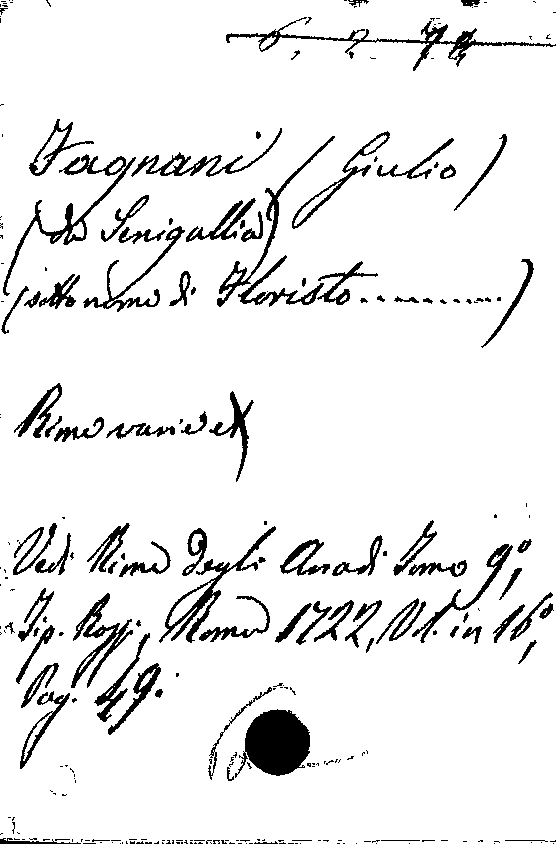 6. 2. 74
Fagnani (Giulio)
(da Senigallia)
(sotto nome di Floristo..........)
Rime varie
Vedi Rime degli Arcadi Tomo 9º,
Tip. Rossi, Roma 1722, Vol. in 16º,
Pag. 49.